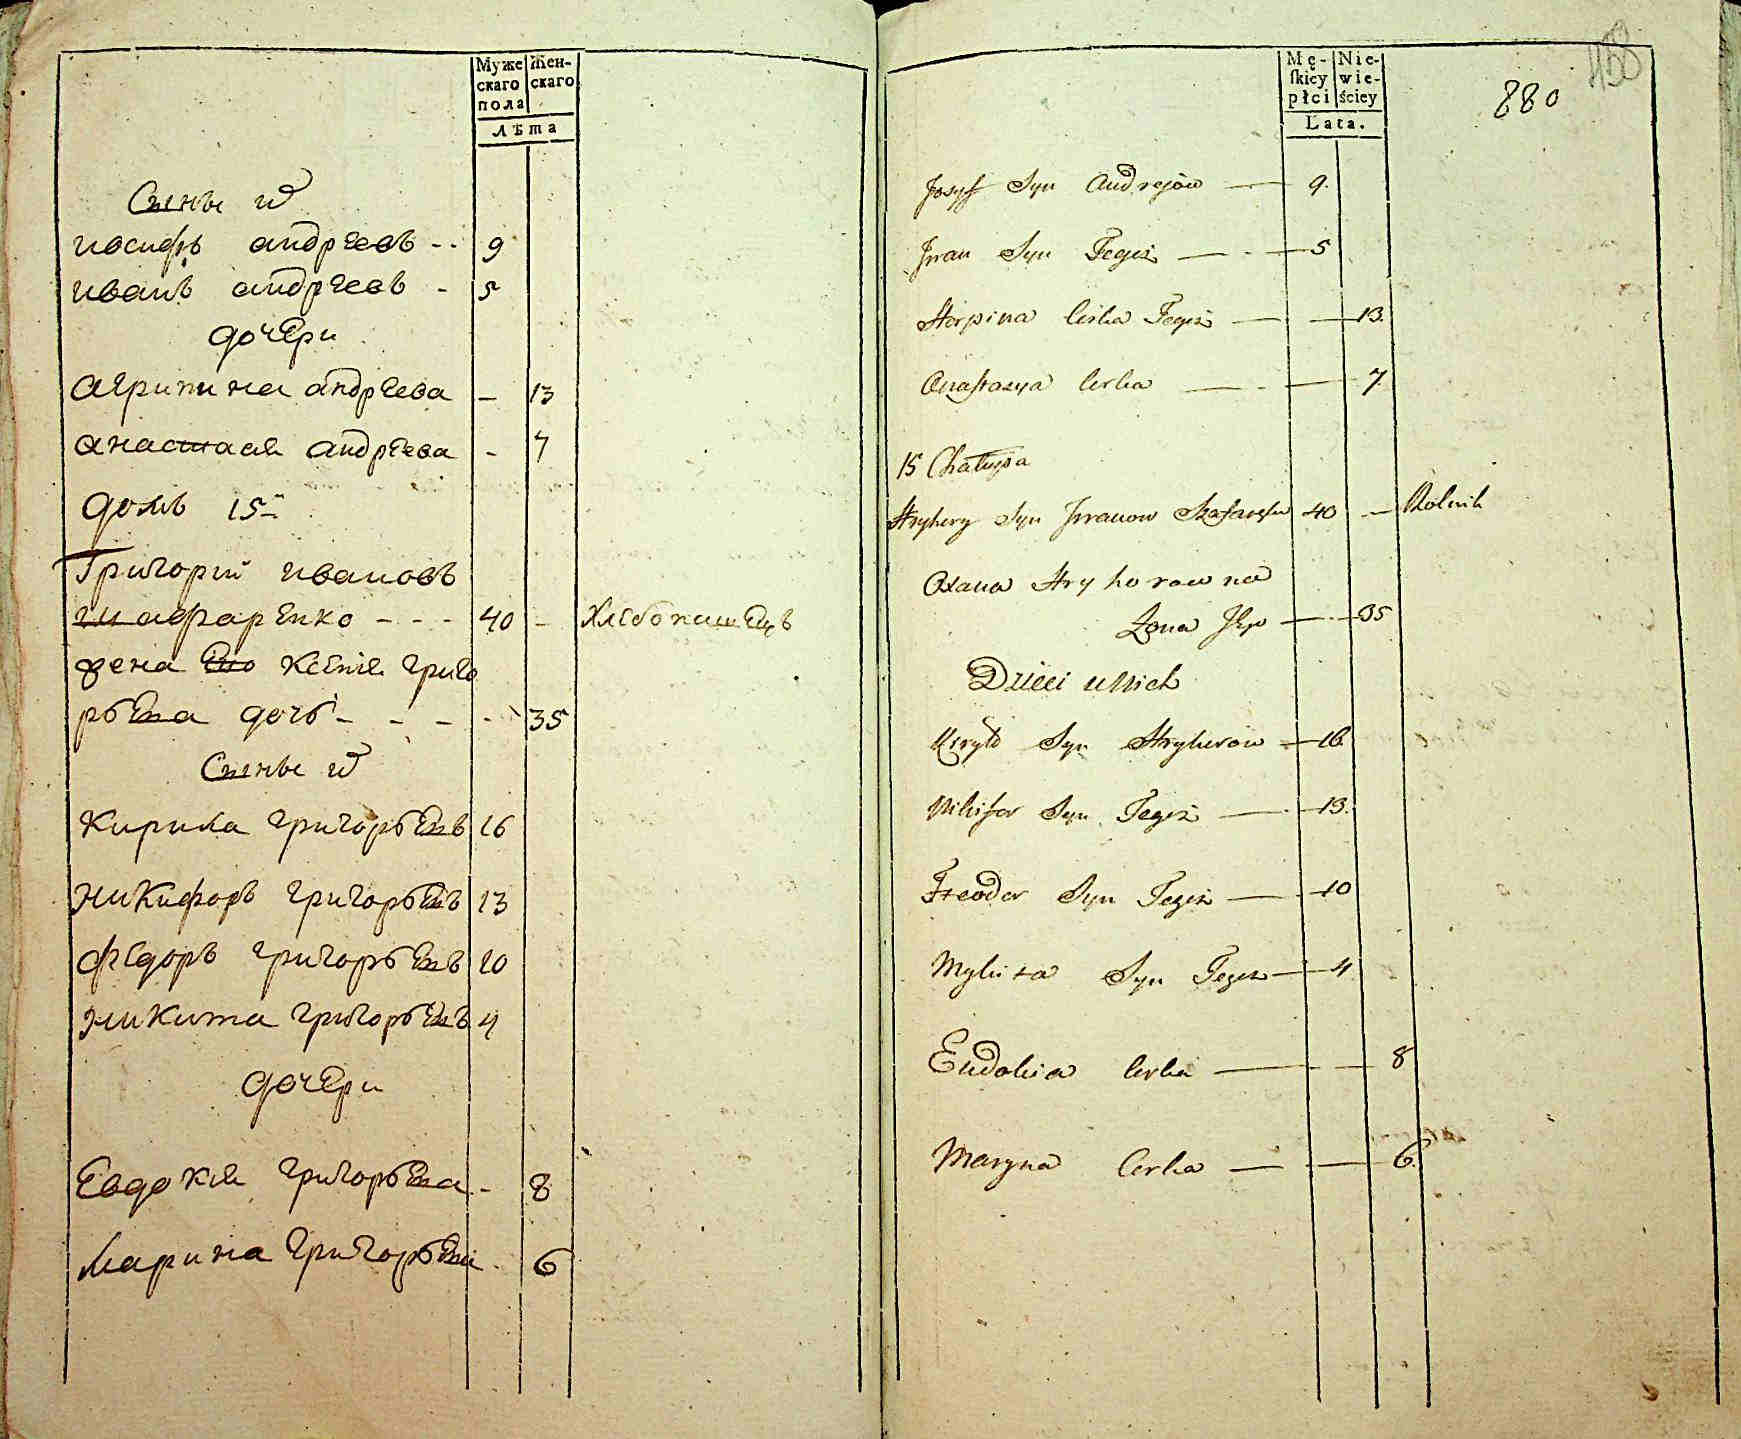 Муже
скаго
пола
Жен-
скаго
Лѣта
Сыны
иосифъ андреевъ - - 9
иванъ андреевъ - 5
дочери
агрипина андреева - 13
анастасия андреева - 7
домъ 15й
Григорий ивановъ
шафаренко - - - 40 - Хлебопашецъ
жена ево ксения григо
рьева дочь - - - - 35
Сыны
Кирила григорьевъ 16
Никифоръ григорьевъ 13
федоръ григорьевъ 10
Никита григорьевъ 4
дочери
Евдокия григорьева - 8
Марина григорьева - 6
Mę-
skiey
płci
Nie-
wie-
ściey
Lata.
158
880
Josyf Syn Andrejów — 9.
Jwan Syn Tegoż — 5
Horpina Córka Tegoż — 13.
Anastazya Córka — 7
15 Chałupa
Hryhory Syn Jwanow Szafareńko 40 — Rolnik
Oxana Hryhorowna
Żona Jego — 35
Dzieci u Nich
Kiryło Syn Hryhorow — 16
Nikifor Syn Tegoż — 13.
Fteodor Syn Tegoż — 10
Mykita Syn Tegoż — 4
Eudokia Córka — 8
Maryna Córka — 6.